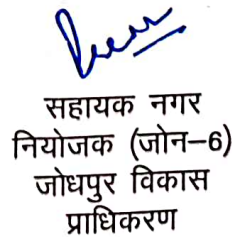 सहायक नगर
नियोजक (जोन-6)
जोधपुर विकास
प्राधिकरण